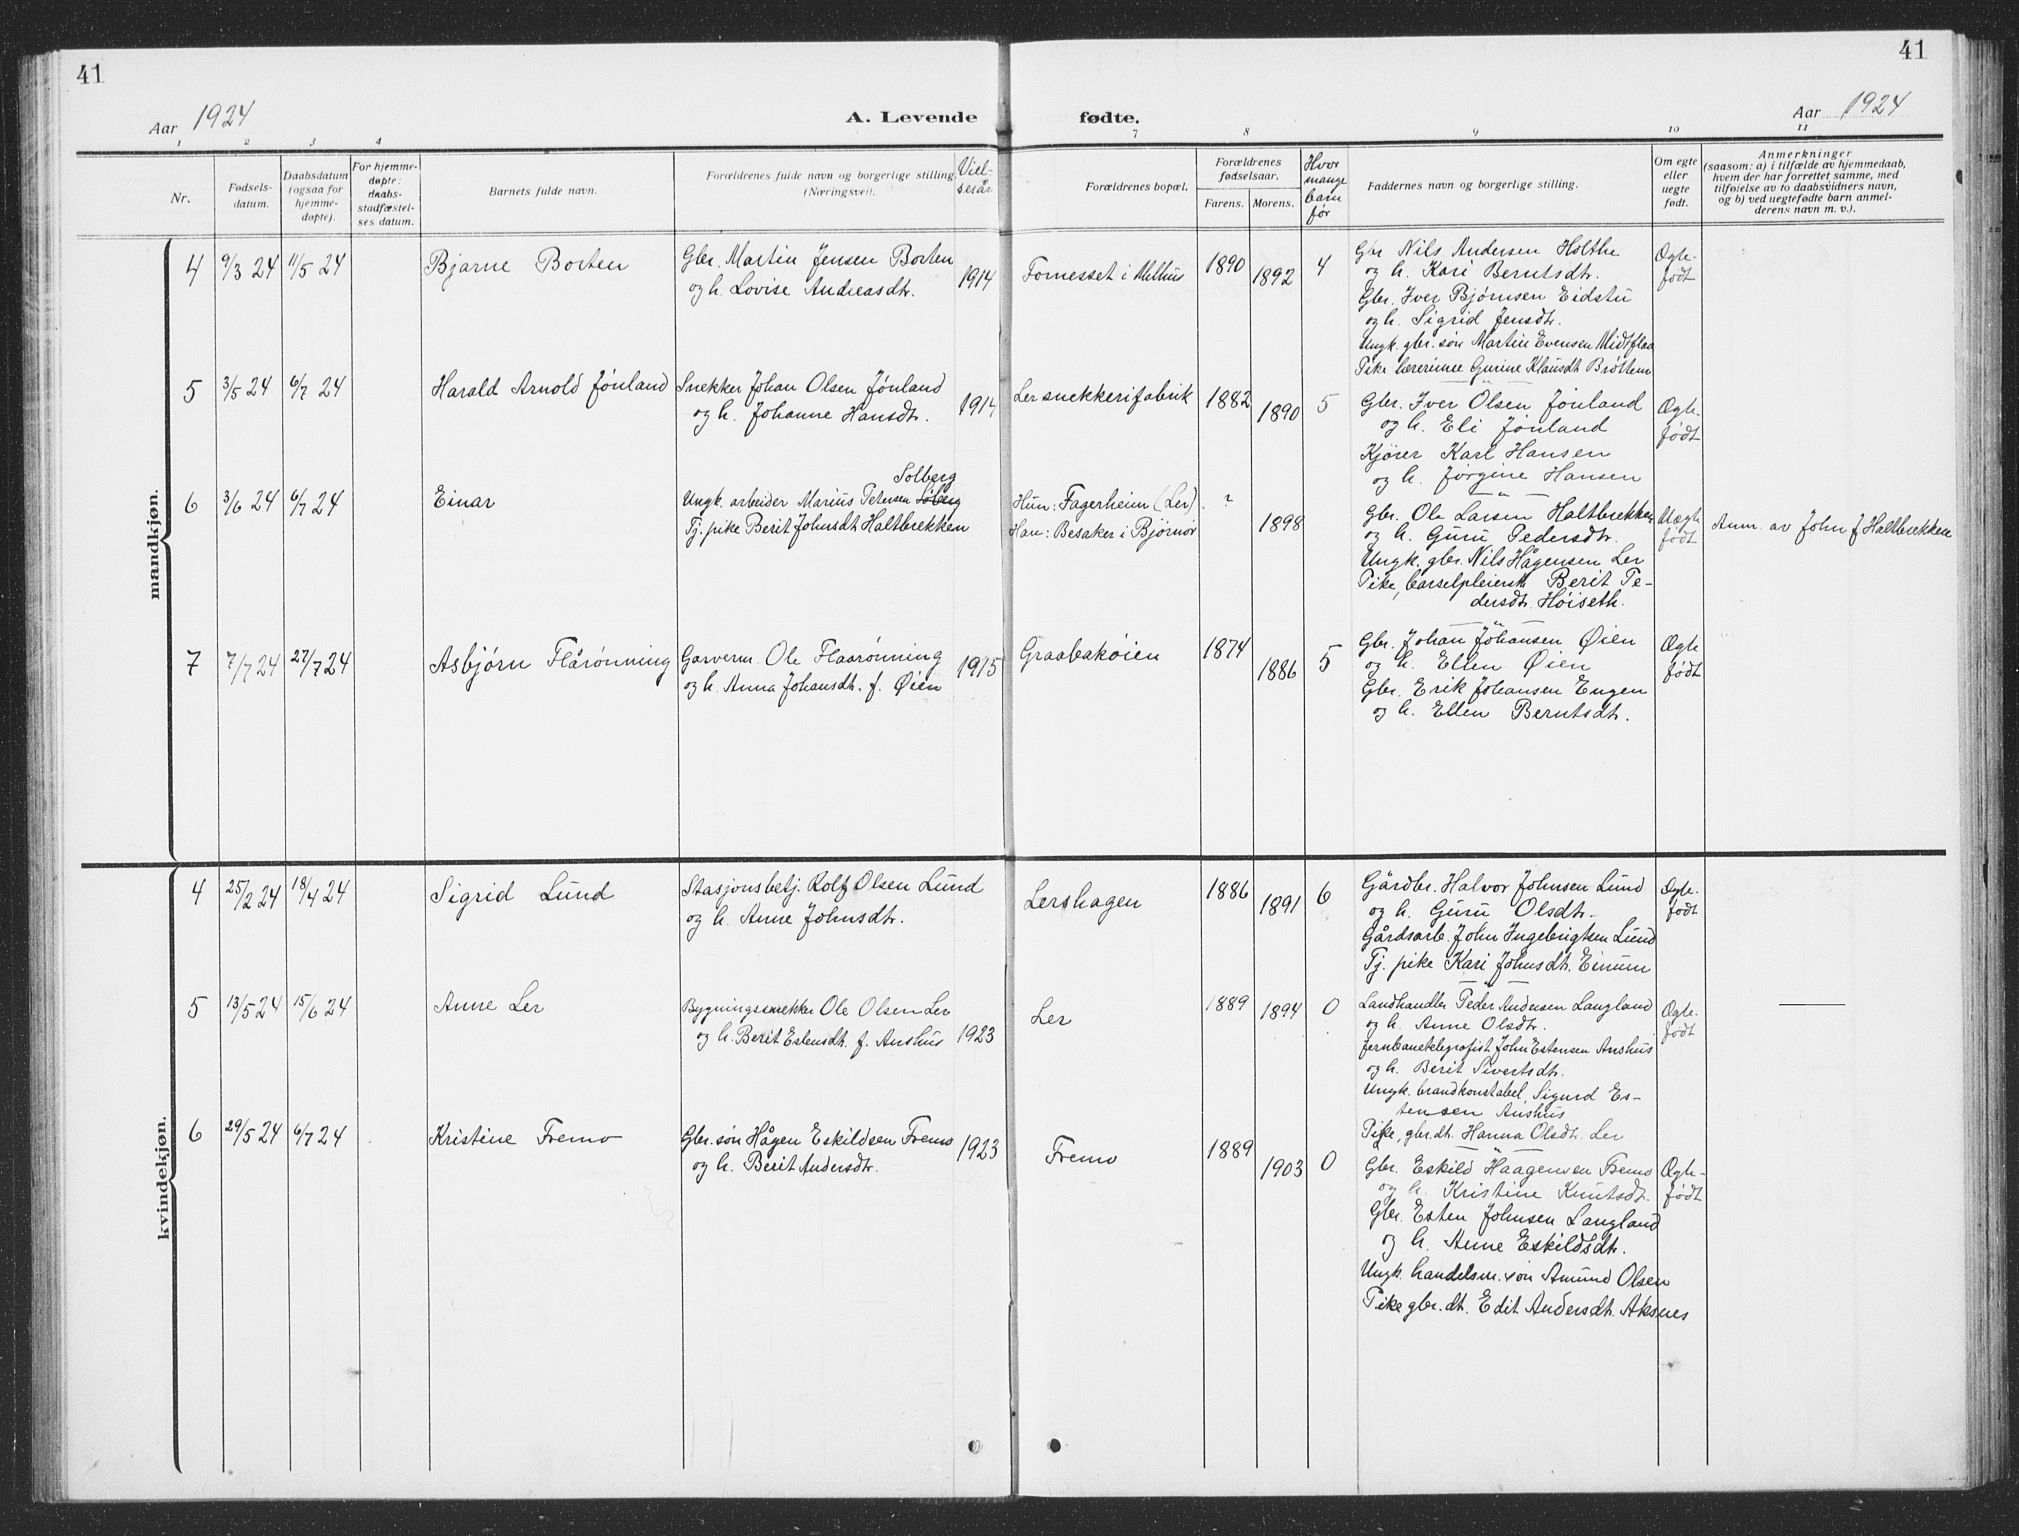 41
41
Aar 1924
A. Levende fødte.
Aar 1924
1 2 3 4 7 8 9 10 11
Nr.
Fødsels-
datum.
Daabsdatum
(ogsaa for
hjemme-
døpte).
For hjemme-
døpte:
daabs-
stadfæstel-
ses datum.
Barnets fulde navn.
Forældrenes fulde navn og borgerlige stilling
(Næringsvei).
Viel-
sesår
Forældrenes bopæl.
Forældrenes
fødselsaar.
Farens. Morens.
Hvor
mange
barn
før
Faddernes navn og borgerlige stilling.
Om egte
eller
uegte
født.
Anmerkninger
(saasom: a) i tilfælde av hjemmedaab,
hvem der har forrettet samme, med
tilføielse av to daabsvidners navn,
og b) ved uegtefødte barn anmel-
derens navn m. v.).
mandkjøn.
4 9/3 24 11/5 24
Bjarne Borten
Gbr. Martin Jensen Borten
og h. Lovise Andreasdtr.
1914
Fornesset i Melhus
1890 1892 4
Gbr Nils Andersen Holthe
og h. Kari Berntsdtr.
Gbr. Iver Bjørnsen Eidstu
og h. Sigrid Jensdtr.
Ungk. gbr. søn Martin Evensen Midtflaa
Pike lærerinne Gurine Klausdt Brøttem
Øgte-
født
5 3/5 24 6/7 24
Harald Arnold Jønland
Snekker Johan Olsen Jønland
og h. Johanne Hansdtr.
1914
Ler snekkerifabrik
1882 1890 5
Gbr. Iver Olsen Jønland
og h. Eli Jønland
Kjører Karl Hansen
og h. Jørgine Hansen
Øgte-
født
6 3/6 24 6/7 24
Einar
Solberg
Ungk. arbeider Marius Petersen
Tj. pike Berit Johnsdt Haltbrekken
Hun: Fagerheim (Ler)
Han: Besaker i Bjørnør
? 1898
Gbr. Ole Larsen Haltbrekken
og h. Guru Pedersdtr.
Ungk. gbr. Nils Hågensen Ler
Pike, barselpleiersk Berit Pe-
dersdtr. Høiseth.
Uægte
født
Anm. av John J Haltbrekken
7 7/7 24 27/7 24
Asbjørn Flårønning
Garverm. Ole Flaarønning
og h. Anna Johansdt. f. Øien
1915
Graabakøien
1874 1886 5
Gbr. Johan Johansen Øien
og h. Ellen Øien
Gbr. Erik Johansen Engen
og h. Ellen Berntsdtr.
Øgte
født
kvindekjøn.
4 25/2 24 18/4 24
Sigrid Lund
Stasjonsbetj. Rolf Olsen Lund
og h. Anne Johnsdtr.
Lershagen
1886 1891 6
Gårdbr. Halvor Johnsen Lund
og h. Guru Olsdtr.
Gårdsarb. John Ingebrigtsen Lund
Tj. pike Kari Johnsdt. Einum
Øgte-
født
5 13/5 24 15/6 24
Anne Ler
Bygningssnekker Ole Olsen Ler
og h. Berit Estensdt. f. Anshus
1923
Ler
1889 1894 0
Landhandler Peder Andersen Langland
og h. Anne Olsdtr.
Jernbanetelegrafist John Estensen Anshus
og h. Berit Sivertsdtr.
Ungk. brandkonstabel, Sigurd Es-
tensen Anshus
Pike, gbr.dt. Hanna Olsdt. Ler
Øgte-
født
6 29/5 24 6/7 24
Kristine Fremo
Gbr. søn Hågen Eskildsen Fremo
og h. Berit Andersdtr.
1923
Fremo
1889 1903 0
Gbr. Eskild Haagensen Fremo
og h. Kristine Knutsdt.
Gbr. Esten Johnsen Langland
og h. Anne Eskildsdtr.
Ungk. handelsm. søn Amund Olsen
Pike gbr. dt. Edit Andersdt. Aksnes
Øgte-
født